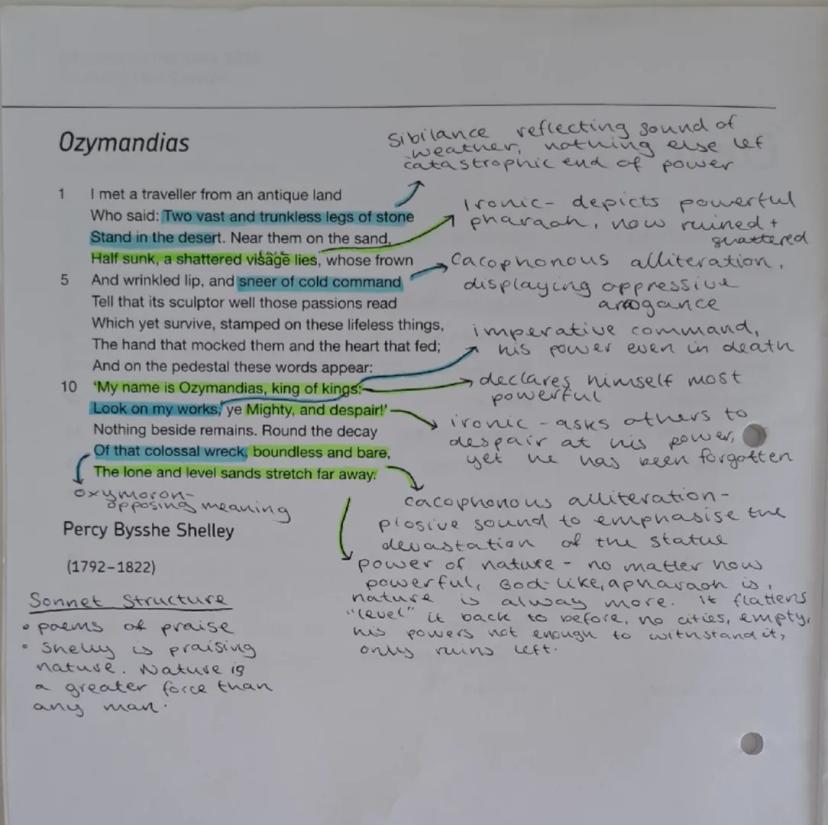 Ozymandias
Sibilance reflecting sound of
weather, nothing else lef
catastrophic end of power
1 I met a traveller from an antique land
Who said: Two vast and trunkless legs of stone
Stand in the desert. Near them on the sand,
Half sunk, a shattered visage lies, whose frown
5 And wrinkled lip, and sneer of cold command
Tell that its sculptor well those passions read
Which yet survive, stamped on these lifeless things,
The hand that mocked them and the heart that fed;
And on the pedestal these words appear:
10 'My name is Ozymandias, king of kings:
Look on my works, ye Mighty, and despair!'
Nothing beside remains. Round the decay
Of that colossal wreck, boundless and bare,
The lone and level sands stretch far away.
Ironic - depicts powerful
pharaoh, now ruined +
shattered
Cacophonous alliteration,
displaying oppressive
arrogance
imperative command,
his power even in death
declares himself most
powerful
ironic - asks others to
despair at his power,
yet he has been forgotten
oxymoron-
opposing meaning
cacophonous alliteration-
plosive sound to emphasise the
devastation of the statue
power of nature - no matter how
powerful, God-like, a pharaoh is,
nature is always more. It flattens
"level" it back to before, no cities, empty,
his powers not enough to withstand it,
only ruins left.
Percy Bysshe Shelley
(1792–1822)
Sonnet Structure
• poems of praise
• Shelly is praising
nature. Nature is
a greater force than
any man.